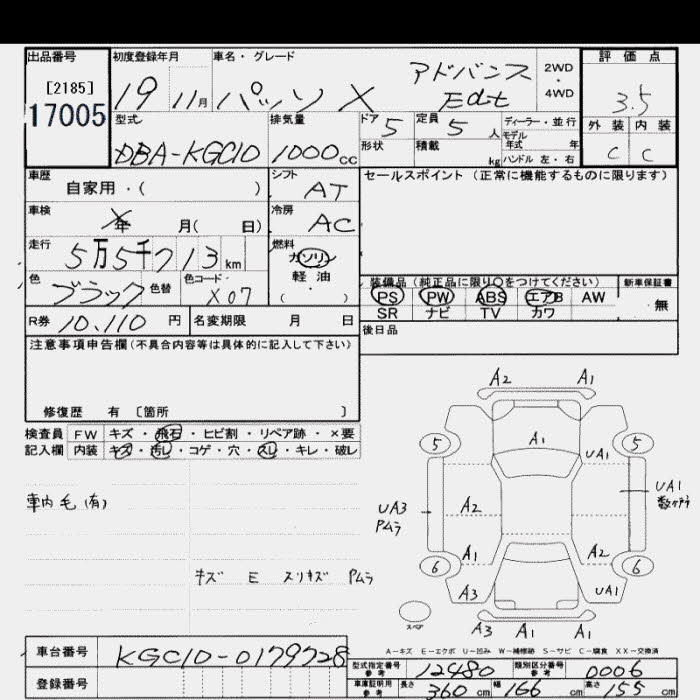 出品番号 初度登録年月 車名・グレード 評価点
[2185]
17005
19 11月 パッソ X アドバンス Edit 2WD・4WD 3.5
型式 排気量 ドア 定員 ディーラー・並行 外装 内装
DBA-KGC10 1000cc 5 5人 モデル年式 年 C C
形状 積載 kg ハンドル 左・右
車歴 シフト セールスポイント (正常に機能するものに限ります)
自家用・( ) AT
車検 冷房
年 月( 日) AC
走行 燃料
5万5千713km ガソリン
軽・油
色 色替 色コード ( ・ )
ブラック X07
装備品 (純正品に限り○をつけてください) 新車保証書
PS PW ABS エアB AW 無
SR ナビ TV カワ
R券 10,110円 名変期限 月 日 後日品
注意事項申告欄(不具合内容等は具体的に記入して下さい)
修復歴 有 〔箇所 〕
検査員 FW キズ・飛石・ヒビ割・リペア跡・×要
記入欄 内装 キズ・汚レ・コゲ・穴・スレ・キレ・破レ
車内毛(有)
キズ E スリキズ Pムラ
A2 A1
5 A1 5
UA1
UA3 Pムラ A2 UA1 数ケ所
A1 A2
6 6
A3 UA1
スペア A3 A1 A1
A-キズ E-エクボ U-凹み W-補修跡 S-サビ C-腐食 XX-交換済
車台番号 KGC10-0179728
型式指定番号 参考 12480 類別区分番号 参考 0006
登録番号
車庫証明用 参考 長さ 360cm 幅 166cm 高さ 155cm